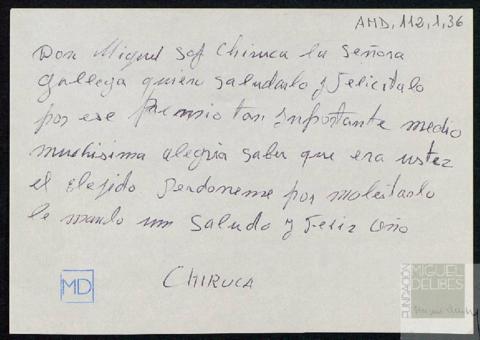 AMD, 112, 1, 36
Don Miguel soy Chiruca la señora
gallega quiero saludarlo y Felicitalo
por ese Premio tan ynportante medio
muchisima alegria saber que era ustez
el elejido Perdoneme por molestarlo
le mando un saludo y Feliz año
CHIRUCA
MD
FUNDACIÓN
MIGUEL
DELIBES